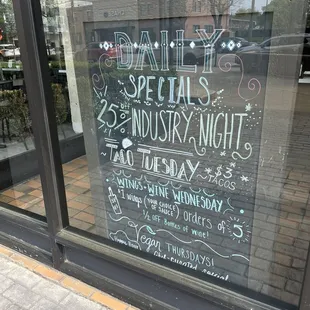 DAILY
SPECIALS
25% OFF INDUSTRY NIGHT
TACO TUESDAY
$3
TACOS
WINGS & WINE WEDNESDAY
$1 WINGS (YOUR CHOICE OF SAUCE) orders of 5
½ OFF Bottles of wine!
Vegan THURSDAYS!
special